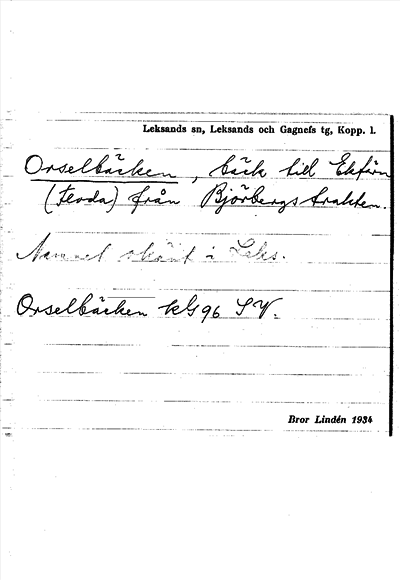 Leksands sn, Leksands och Gagnefs tg, Kopp. l.
Orselbäcken, bäck till Ektjärn
(Fevda) från Björbergstrakten.
Namnet okänt i Leks.
Orselbäcken kG 96 SV.
Bror Lindén 1934